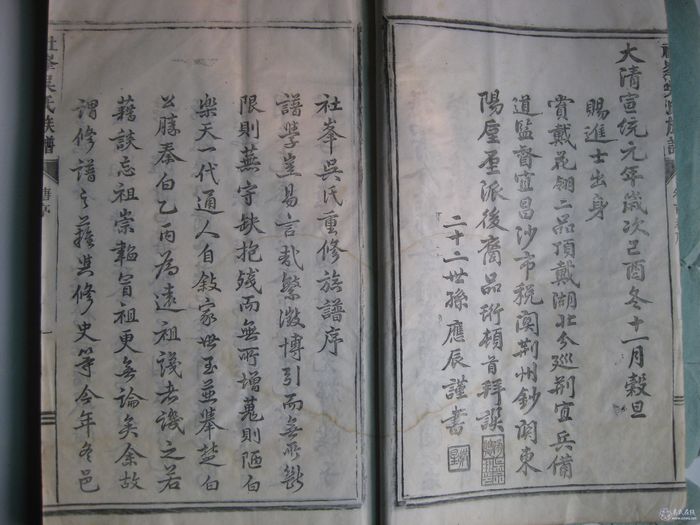 大清宣統元年歲次己酉冬十一月穀旦
賜進士出身
賞戴花翎二品頂戴湖北分巡荆宜兵備
道監督宜昌沙市稅關荆州鈔關東
陽厔派後裔品珩頓首拜譔
二十二世孫應辰謹書
社峯吳氏重修族譜序
譜學豈易言哉繁徵博引而無所斷
限則蕪守缺抱殘而無所增蒐則陋白
樂天一代通人自敘家世至並舉楚白
公勝秦白乙丙為遠祖識者譏之若
藉談忘祖崇韜冒祖更無論矣余故
謂修譜之難與修史等今年冬邑
社峯吳氏族譜
舊序